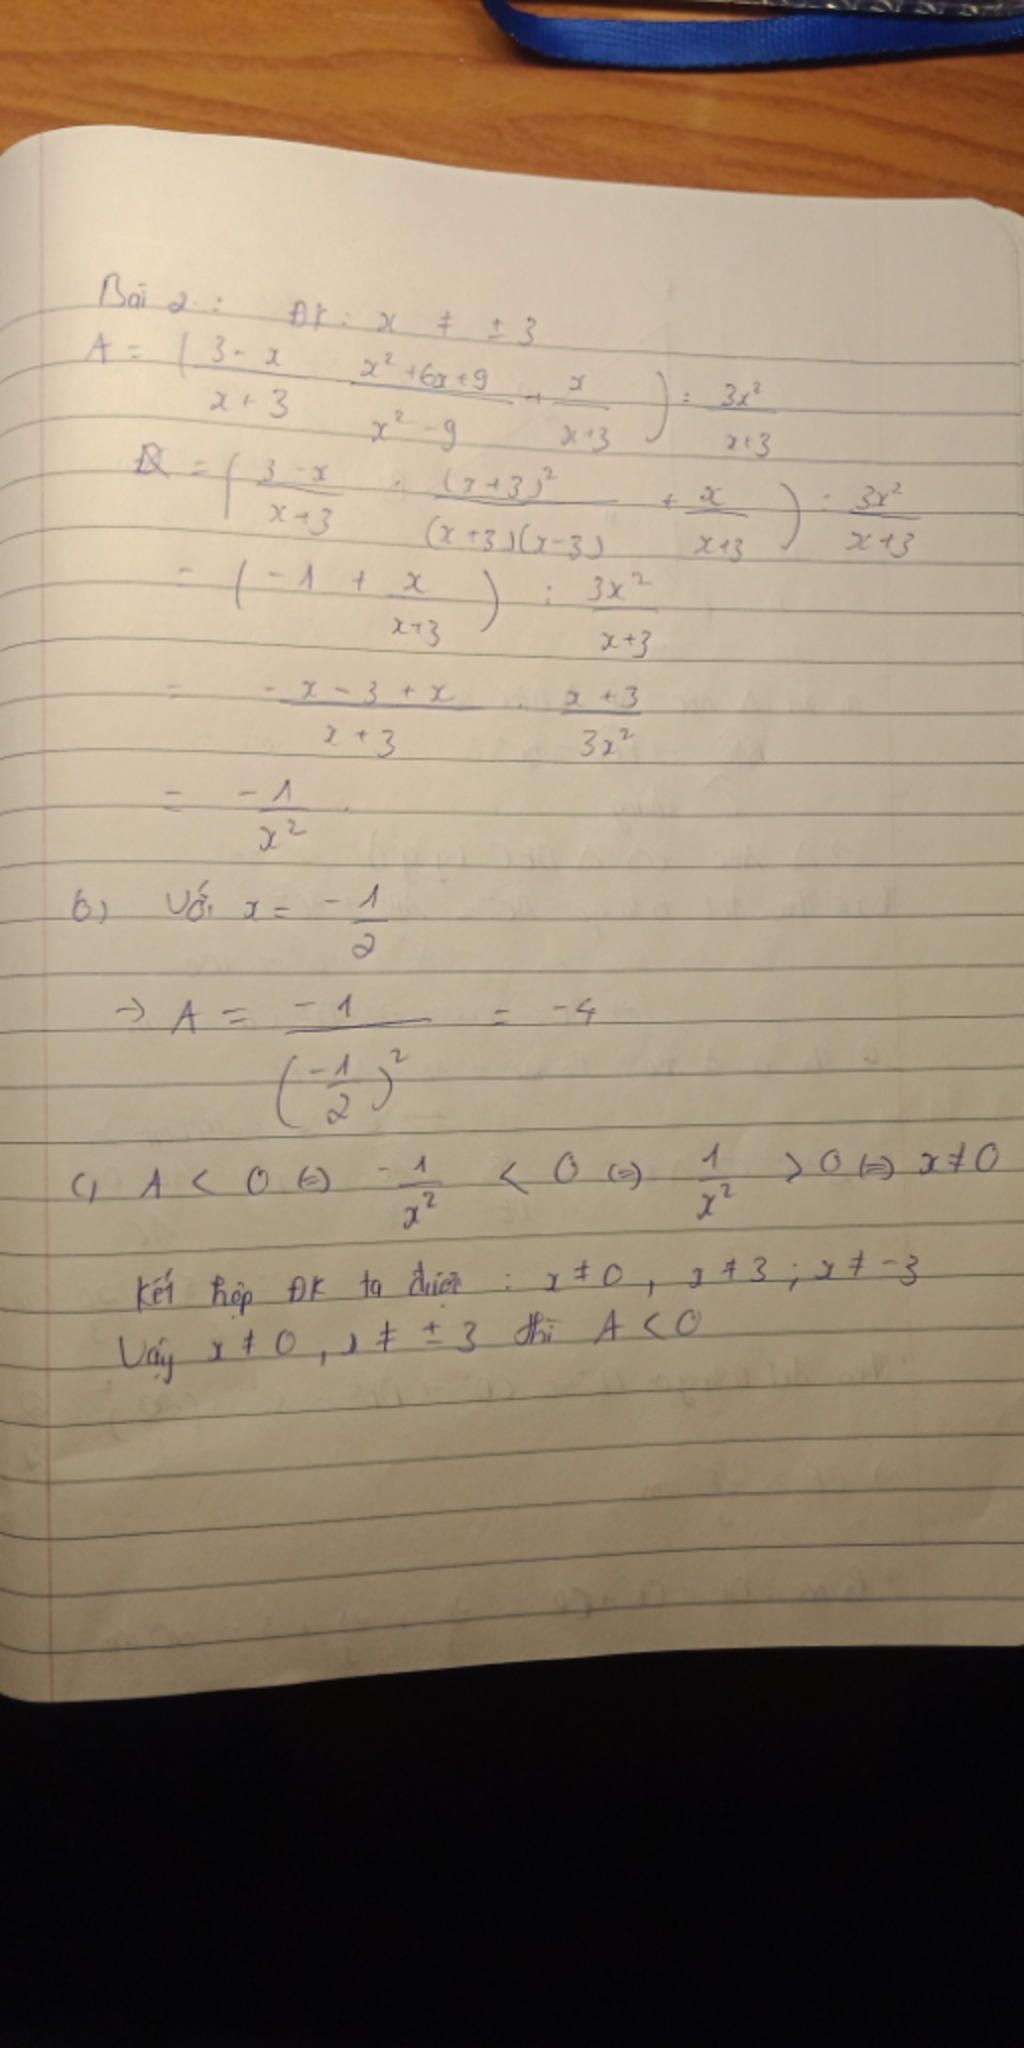 Bài 2: ĐK: x ≠ ± 3
A = (3 - x / x + 3 x² + 6x + 9 / x² - 9 + x / x+3) : 3x² / x+3
= (3 - x / x+3 . (x+3)² / (x+3)(x-3) + x / x+3) : 3x² / x+3
= (-1 + x / x+3) : 3x² / x+3
= -x - 3 + x / x + 3 . x + 3 / 3x²
= -1 / x²
b) Với x = -1 / 2
→ A = -1 / (-1 / 2)² = -4
c) A < 0 (=) -1 / x² < 0 (=) 1 / x² > 0 (=) x ≠ 0
Kết hợp ĐK ta được : x ≠ 0, x ≠ 3 ; x ≠ -3
Vậy x ≠ 0, x ≠ ± 3 thì A < 0